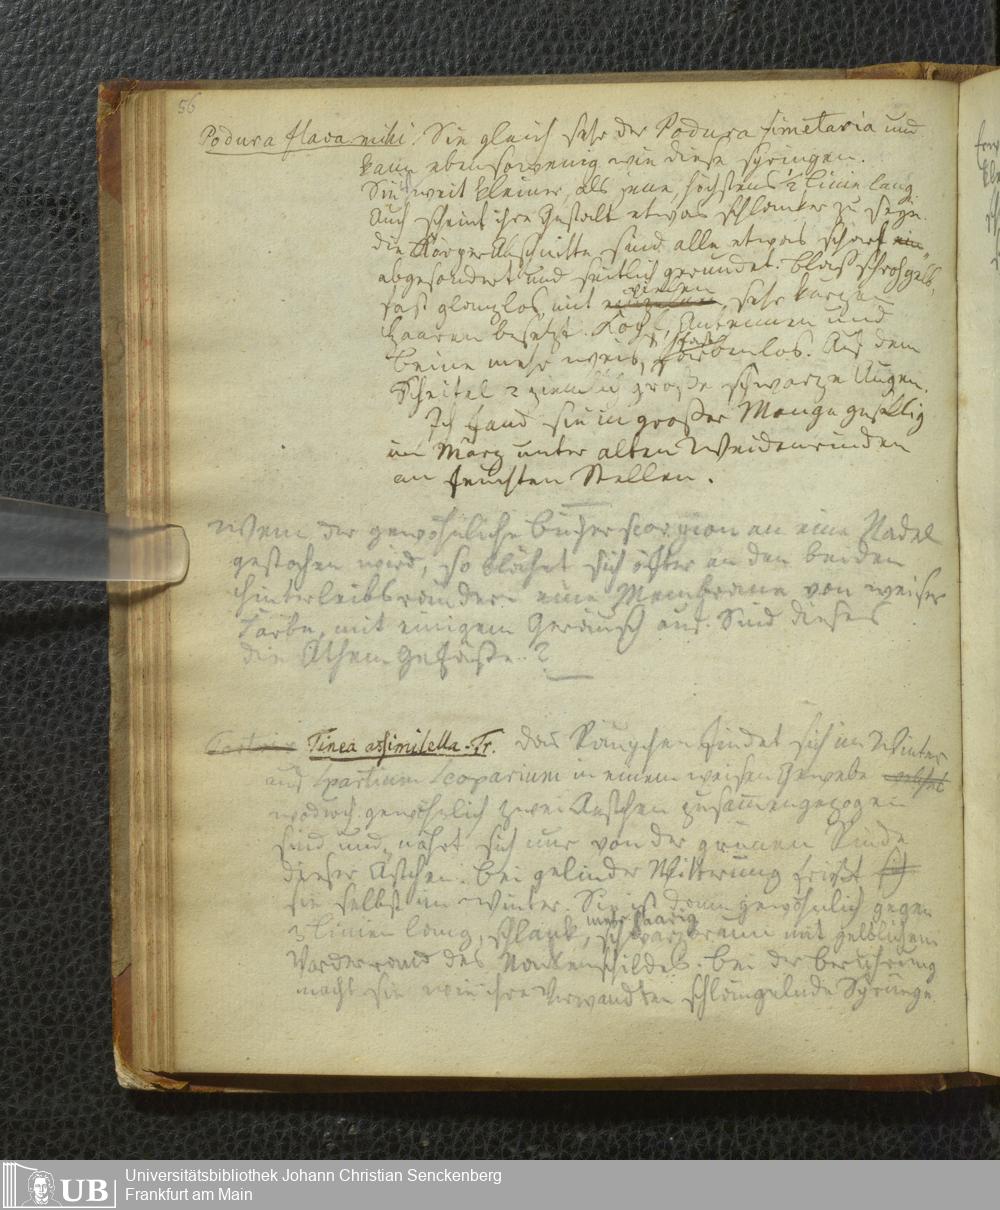 56
Podura flava mihi. Sie gleich sehr der Podura fimetaria und
kann ebensowenig wie diese springen.
Sie weit kleiner, als jene, höchstens ½ Linie lang
Auch scheint ihre Gestalt etwas schlanker zu seyn.
die Körperabschnitte sind alle etwas scharf ein
abgesondert und seitlich gerundet. blaß strohgelb,
fast glanzlos, mit vielen sehr kurzen
Haaren besetzt. Kopf, Antennen und
Beine mehr weis, fast farbenlos. Auf dem
Scheitel 2 ziemlich große schwarze Augen.
Ich fand sie in großer Menge gesellig
im März unter alten Weidenrinden
an feuchten Stellen.
Wenn der gewöhnliche Bücherscorpion an eine Nadel
gestochen wird, so bläht sich öfter an den beiden
Hinterleibsrändern eine Membrane von weiser
Farbe, mit einigem Geräusch aus. Sind dieses
die Athemgefäße.?
Tinea assimilella. Tr. Das Räupchen findet sich im Winter
auf Spartium Scoparium in einem weisen Gewebe
wodurch gewöhnlich zwei Aestchen zusammengezogen
sind und nährt sich nur von der grünen Rinde
dieser Ästchen. Bei gelinder Witterung frißt
sie selbst im Winter. Sie ist dann gewöhnlich gegen
3 Linien lang, schlank, schwarzbraun mit gelblichem
Vorderrand des Nackenschildes. Bei der Berührung
macht sie wie ihre Verwandten schlängelnde Sprünge
Universitätsbibliothek Johann Christian Senckenberg
Frankfurt am Main
UB